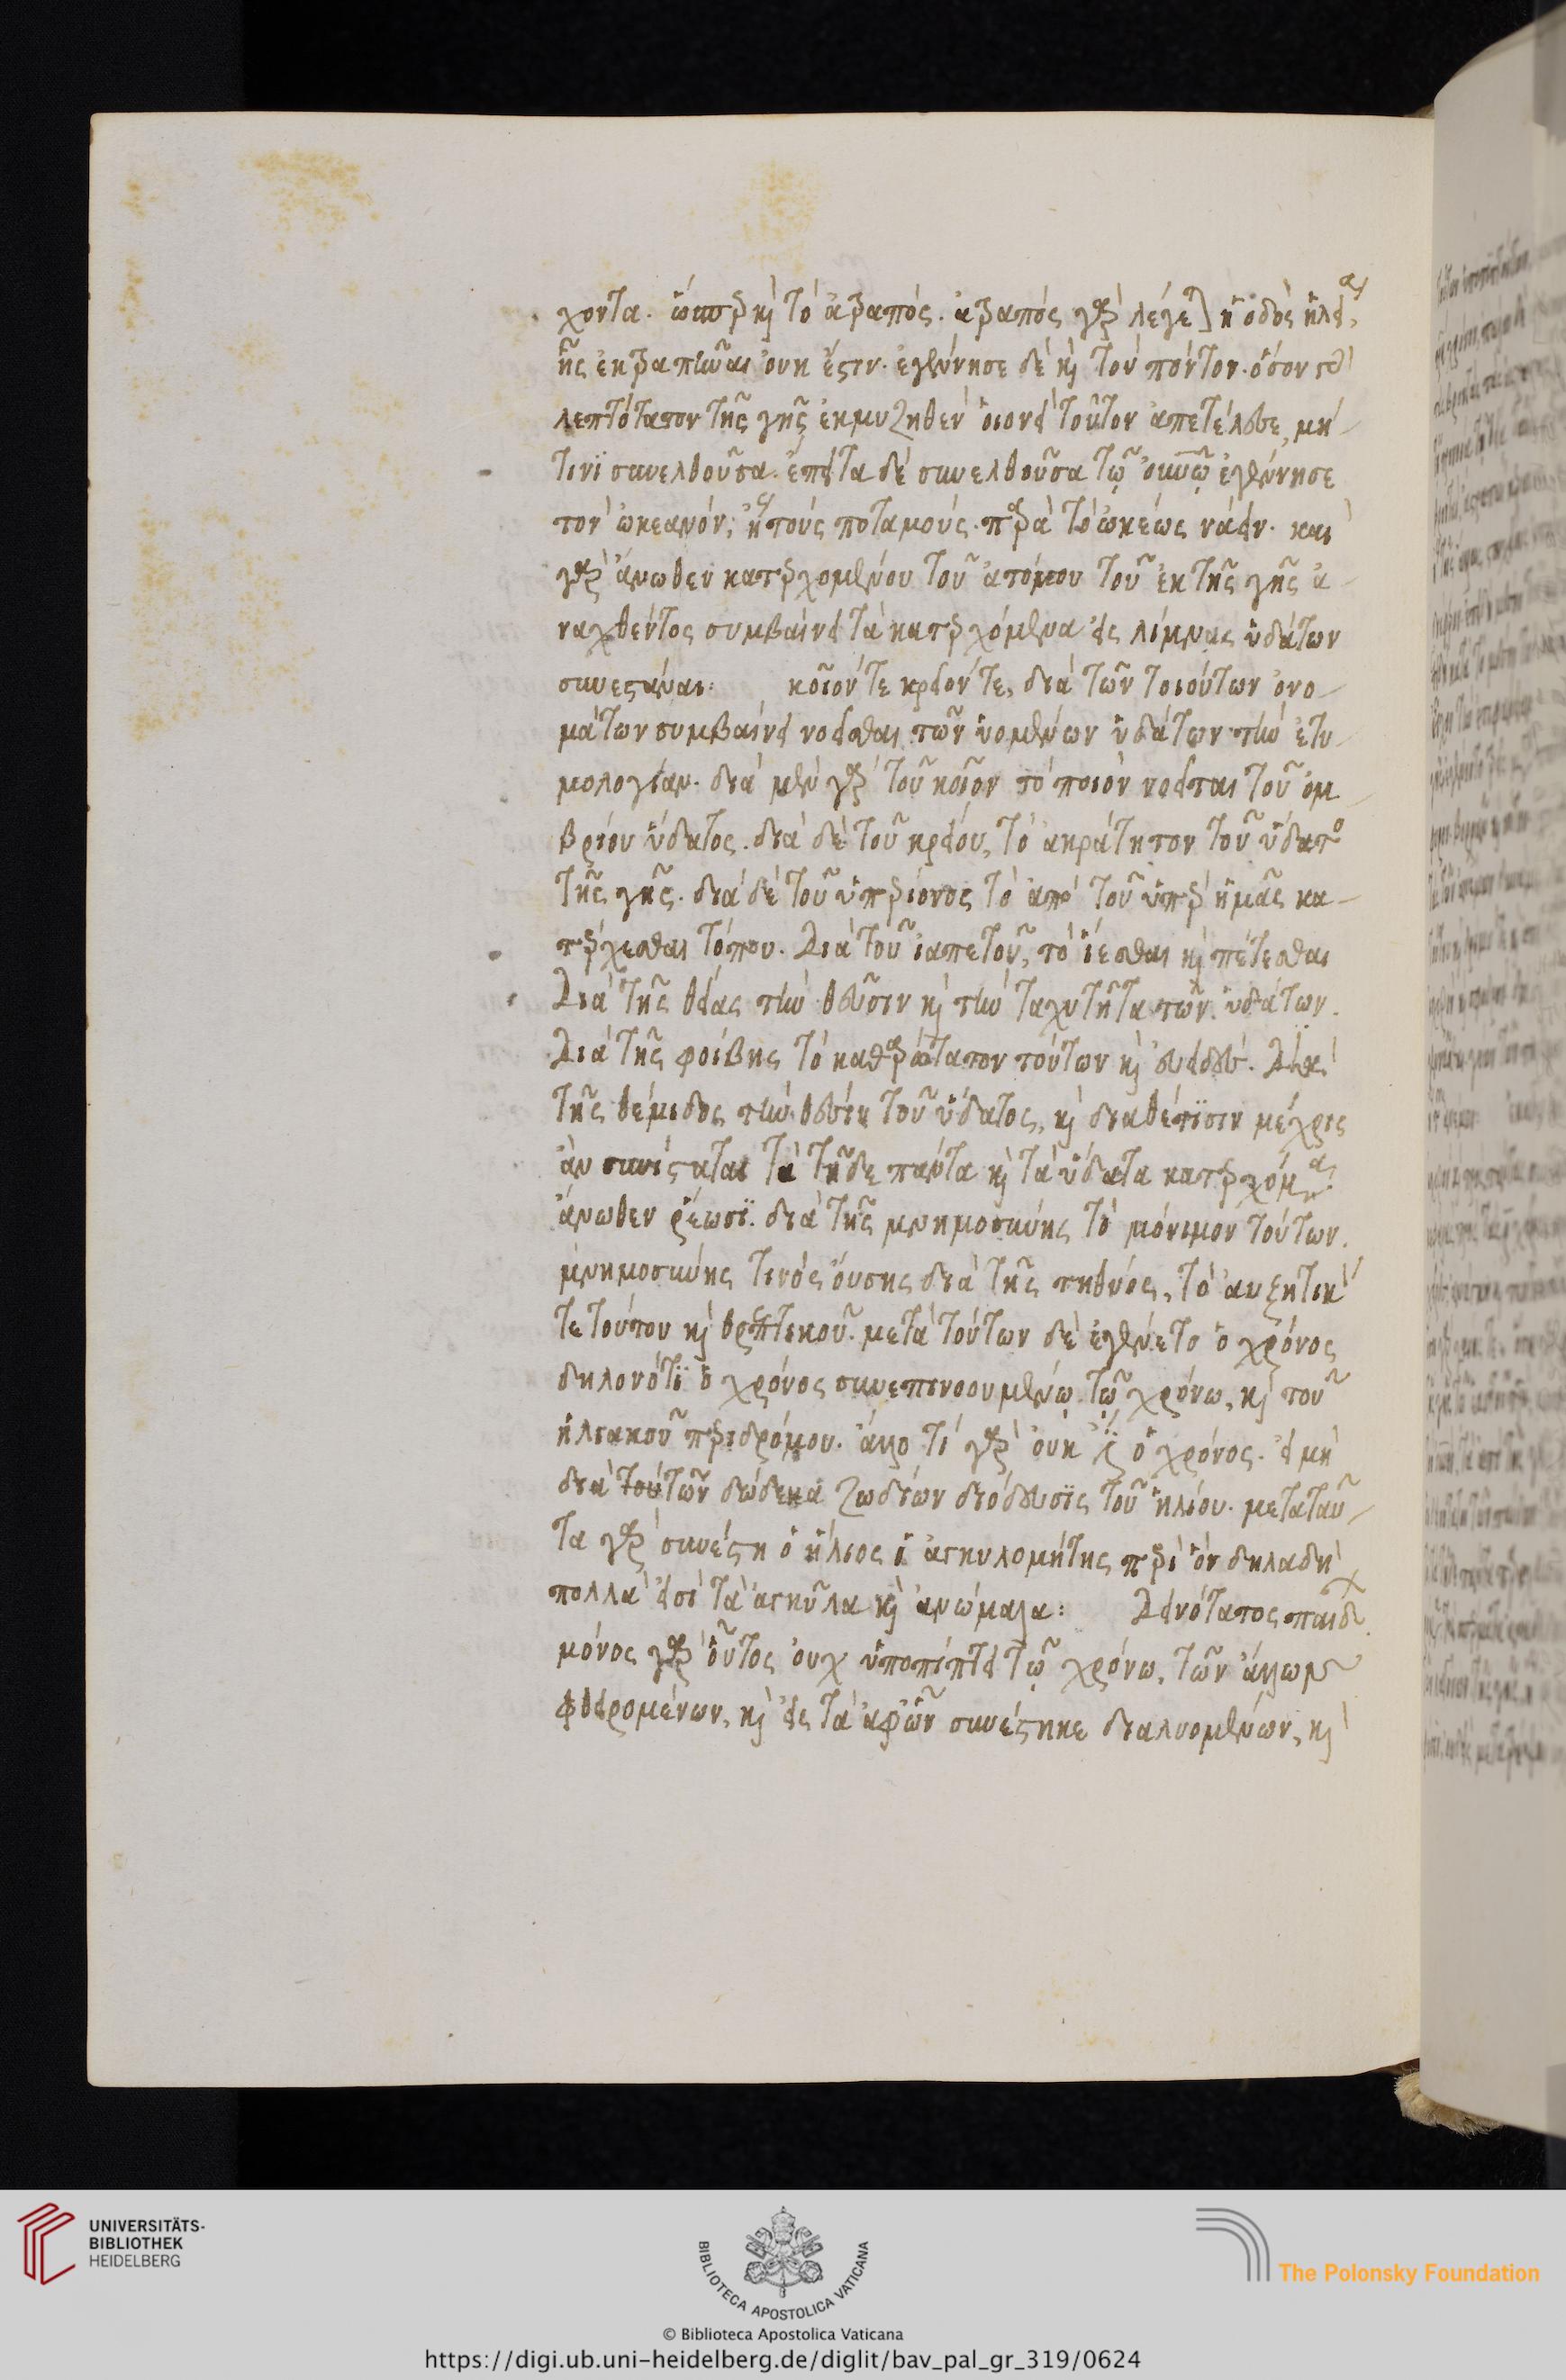 χοντα. ὥσπερ καὶ τὸ ἀτραπός. ἀτραπός γὰρ λέγεται ἡ ὁδὸς
ἧς ἐκτραπῆναι οὐκ ἔστιν. ἐγέννησε δὲ καὶ τὸν πόντον. ὅσον
λεπτότατον τῆς γῆς ἐκμυζηθὲν οἱονεὶ τοῦτον ἀπετέλεσε, μή
τινι συνελθοῦσα. ἔπειτα δὲ συνελθοῦσα τῷ οὐρανῷ ἐγέννησε
τὸν ὠκεανόν, καὶ τοὺς ποταμούς. παρὰ τὸ ὠκέως νάειν. και
γὰρ ἄνωθεν κατερχομένου τοῦ ἀτόμου τοῦ ἐκ τῆς γῆς ἀ
ναχθέντος συμβαίνει τὰ κατερχόμενα εἰς λίμνας ὑδάτων
συνεστάναι: κοῖόν τε κρεῖόν τε, διὰ τῶν τοιούτων ὀνο
μάτων συμβαίνει νοεῖσθαι τῶν ὑομένων ὑδάτων τὴν ἐτυ
μολογίαν. διὰ μὲν γὰρ τοῦ κοῖον τὸ ποιὸν νοεῖται τοῦ ὀμ
βρίου ὕδατος. διὰ δὲ τοῦ κρείου, τὸ ἀκράτητον τοῦ ὕδατος
τῆς γῆς. διὰ δὲ τοῦ ὑπερίονος τὸ ἀπὸ τοῦ ὑπὲρ ἡμᾶς κα
τέρχεσθαι τόπου. Διὰ τοῦ ἰαπετοῦ, τὸ ἵεσθαι καὶ πέτεσθαι
Διὰ τῆς θείας τὴν θεῦσιν καὶ τὴν ταχυτῆτα τῶν ὑδάτων.
Διὰ τῆς φοίβης τὸ καθαρώτατον τούτων καὶ Διὰ
τῆς θέμιδος τὴν θέσιν τοῦ ὕδατος, καὶ διαθέτισιν μέχρις
ἂν συνίσταται τὰ τῇδε πάντα καὶ τὰ ὕδατα κατερχόμενα
ἄνωθεν ῥέωσι. διὰ τῆς μνημοσύνης τὸ μόνιμον τούτων.
μνημοσύνης τινὸς οὔσης διὰ τῆς τηθύος, τὸ αὐξητικόν
τε τούτου καὶ θρεπτικοῦ. μετὰ τούτων δὲ ἐγένετο ὁ χρόνος
δηλονότι ὁ χρόνος συνεπινοουμένῳ τῷ χρόνω, καὶ τοῦ
ἡλιακοῦ περιδρόμου. ἄλλο τί γὰρ οὐκ ἔστι ὁ χρόνος. εἰ μὴ
διὰ τούτων δώδεκα ζωδίων διόδευσις τοῦ ἡλίου. μετα ταῦ
τα γὰρ συνέστη ὁ ἥλιος ὁ ἀγκυλομήτης περὶ ὃν δηλαδὴ
πολλὰ εἰσὶ τὰ ἀγκύλα καὶ ἀνώμαλα: Δεινότατος παίδων
μόνος γὰρ οὗτος οὐχ ὑποπίπτει τῷ χρόνω, τῶν ἄλλων
φθειρομένων, καὶ εἰς τὰ ἀφ ὧν συνέστηκε διαλυομένων, καὶ
UNIVERSITÄTS-
BIBLIOTHEK
HEIDELBERG
BIBLIOTECA APOSTOLICA VATICANA
The Polonsky Foundation
© Biblioteca Apostolica Vaticana
https://digi.ub.uni-heidelberg.de/diglit/bav_pal_gr_319/0624